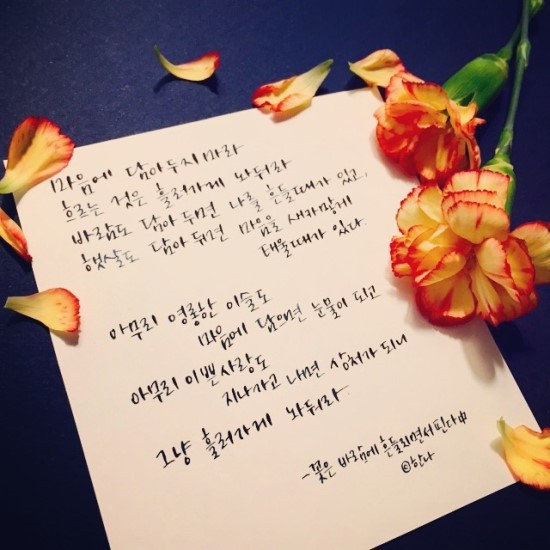 마음에 담아두지마라
흐르는 것은 흘러가게 놔둬라
바람도 담아두면 나를 흔들때가 있고,
햇살도 담아두면 마음을 새까맣게
태울때가 있다.
아무리 영롱한 이슬도
마음에 담으면 눈물이 되고
아무리 이쁜사랑도
지나가고 나면 상처가 되니
그냥 흘러가게 놔둬라
-꽃은 바람에 흔들리면서 핀다 中
©한나